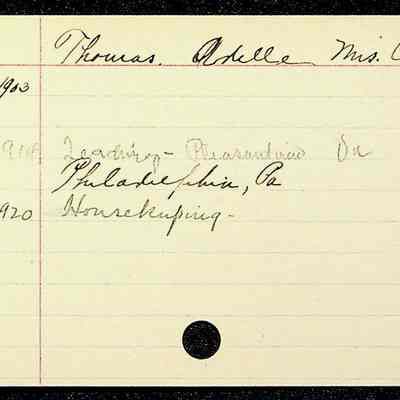 Thomas. Adella Mrs.
1903
Teaching - Pleasantview
Philadelphia, Pa
1920 Housekeeping -